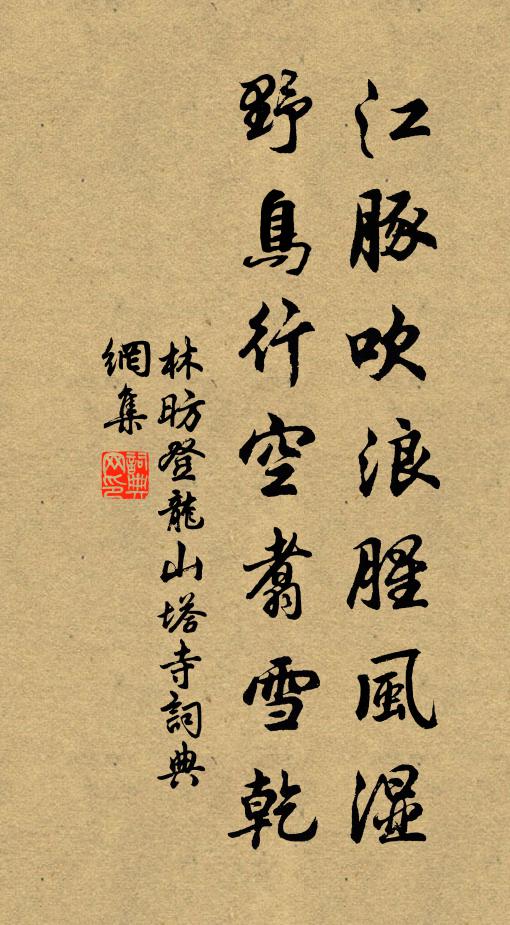 江豚吹浪腥風湿
野鳥行空翥雪乾
林昉登龍山塔寺詞典
網集
詞典網印